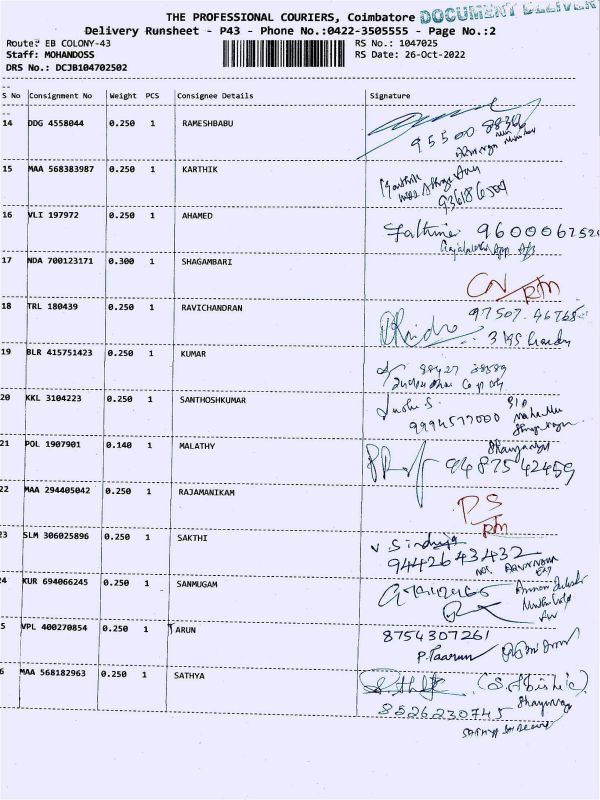 THE PROFESSIONAL COURIERS, Coimbatore
DOCUMENT DELIVER
Delivery Runsheet - P43 - Phone No.:0422-3505555 - Page No.:2
Route: EB COLONY-43
RS No.: 1047025
Staff: MOHANDOSS
RS Date: 26-Oct-2022
DRS No.: DCJB104702502
S No Consignment No Weight PCS Consignee Details Signature
14 DDG 4558044 0.250 1 RAMESHBABU
95500 8836
15 MAA 568383987 0.250 1 KARTHIK
Karthik
16 VLI 197972 0.250 1 AHAMED
Fathima 960006752
17 NDA 700123171 0.300 1 SHAGAMBARI
CN
RTM
18 TRL 180439 0.250 1 RAVICHANDRAN
97507.46765
19 BLR 415751423 0.250 1 KUMAR
20 KKL 3104223 0.250 1 SANTHOSHKUMAR
9994577000
21 POL 1907901 0.140 1 MALATHY
9487542459
22 MAA 294405042 0.250 1 RAJAMANIKAM
DS
RTM
23 SLM 306025896 0.250 1 SAKTHI
V Sindhuja
9442643432
24 KUR 694066245 0.250 1 SANMUGAM
5 VPL 400270854 0.250 1 TARUN
8754307261
P.Taarun
6 MAA 568182963 0.250 1 SATHYA
8526230745